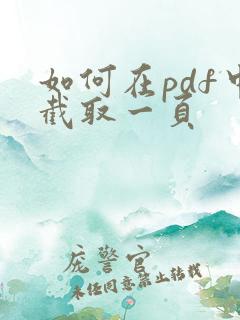 如何在pdf中
截取一页
庞警官
未经同意禁止转载